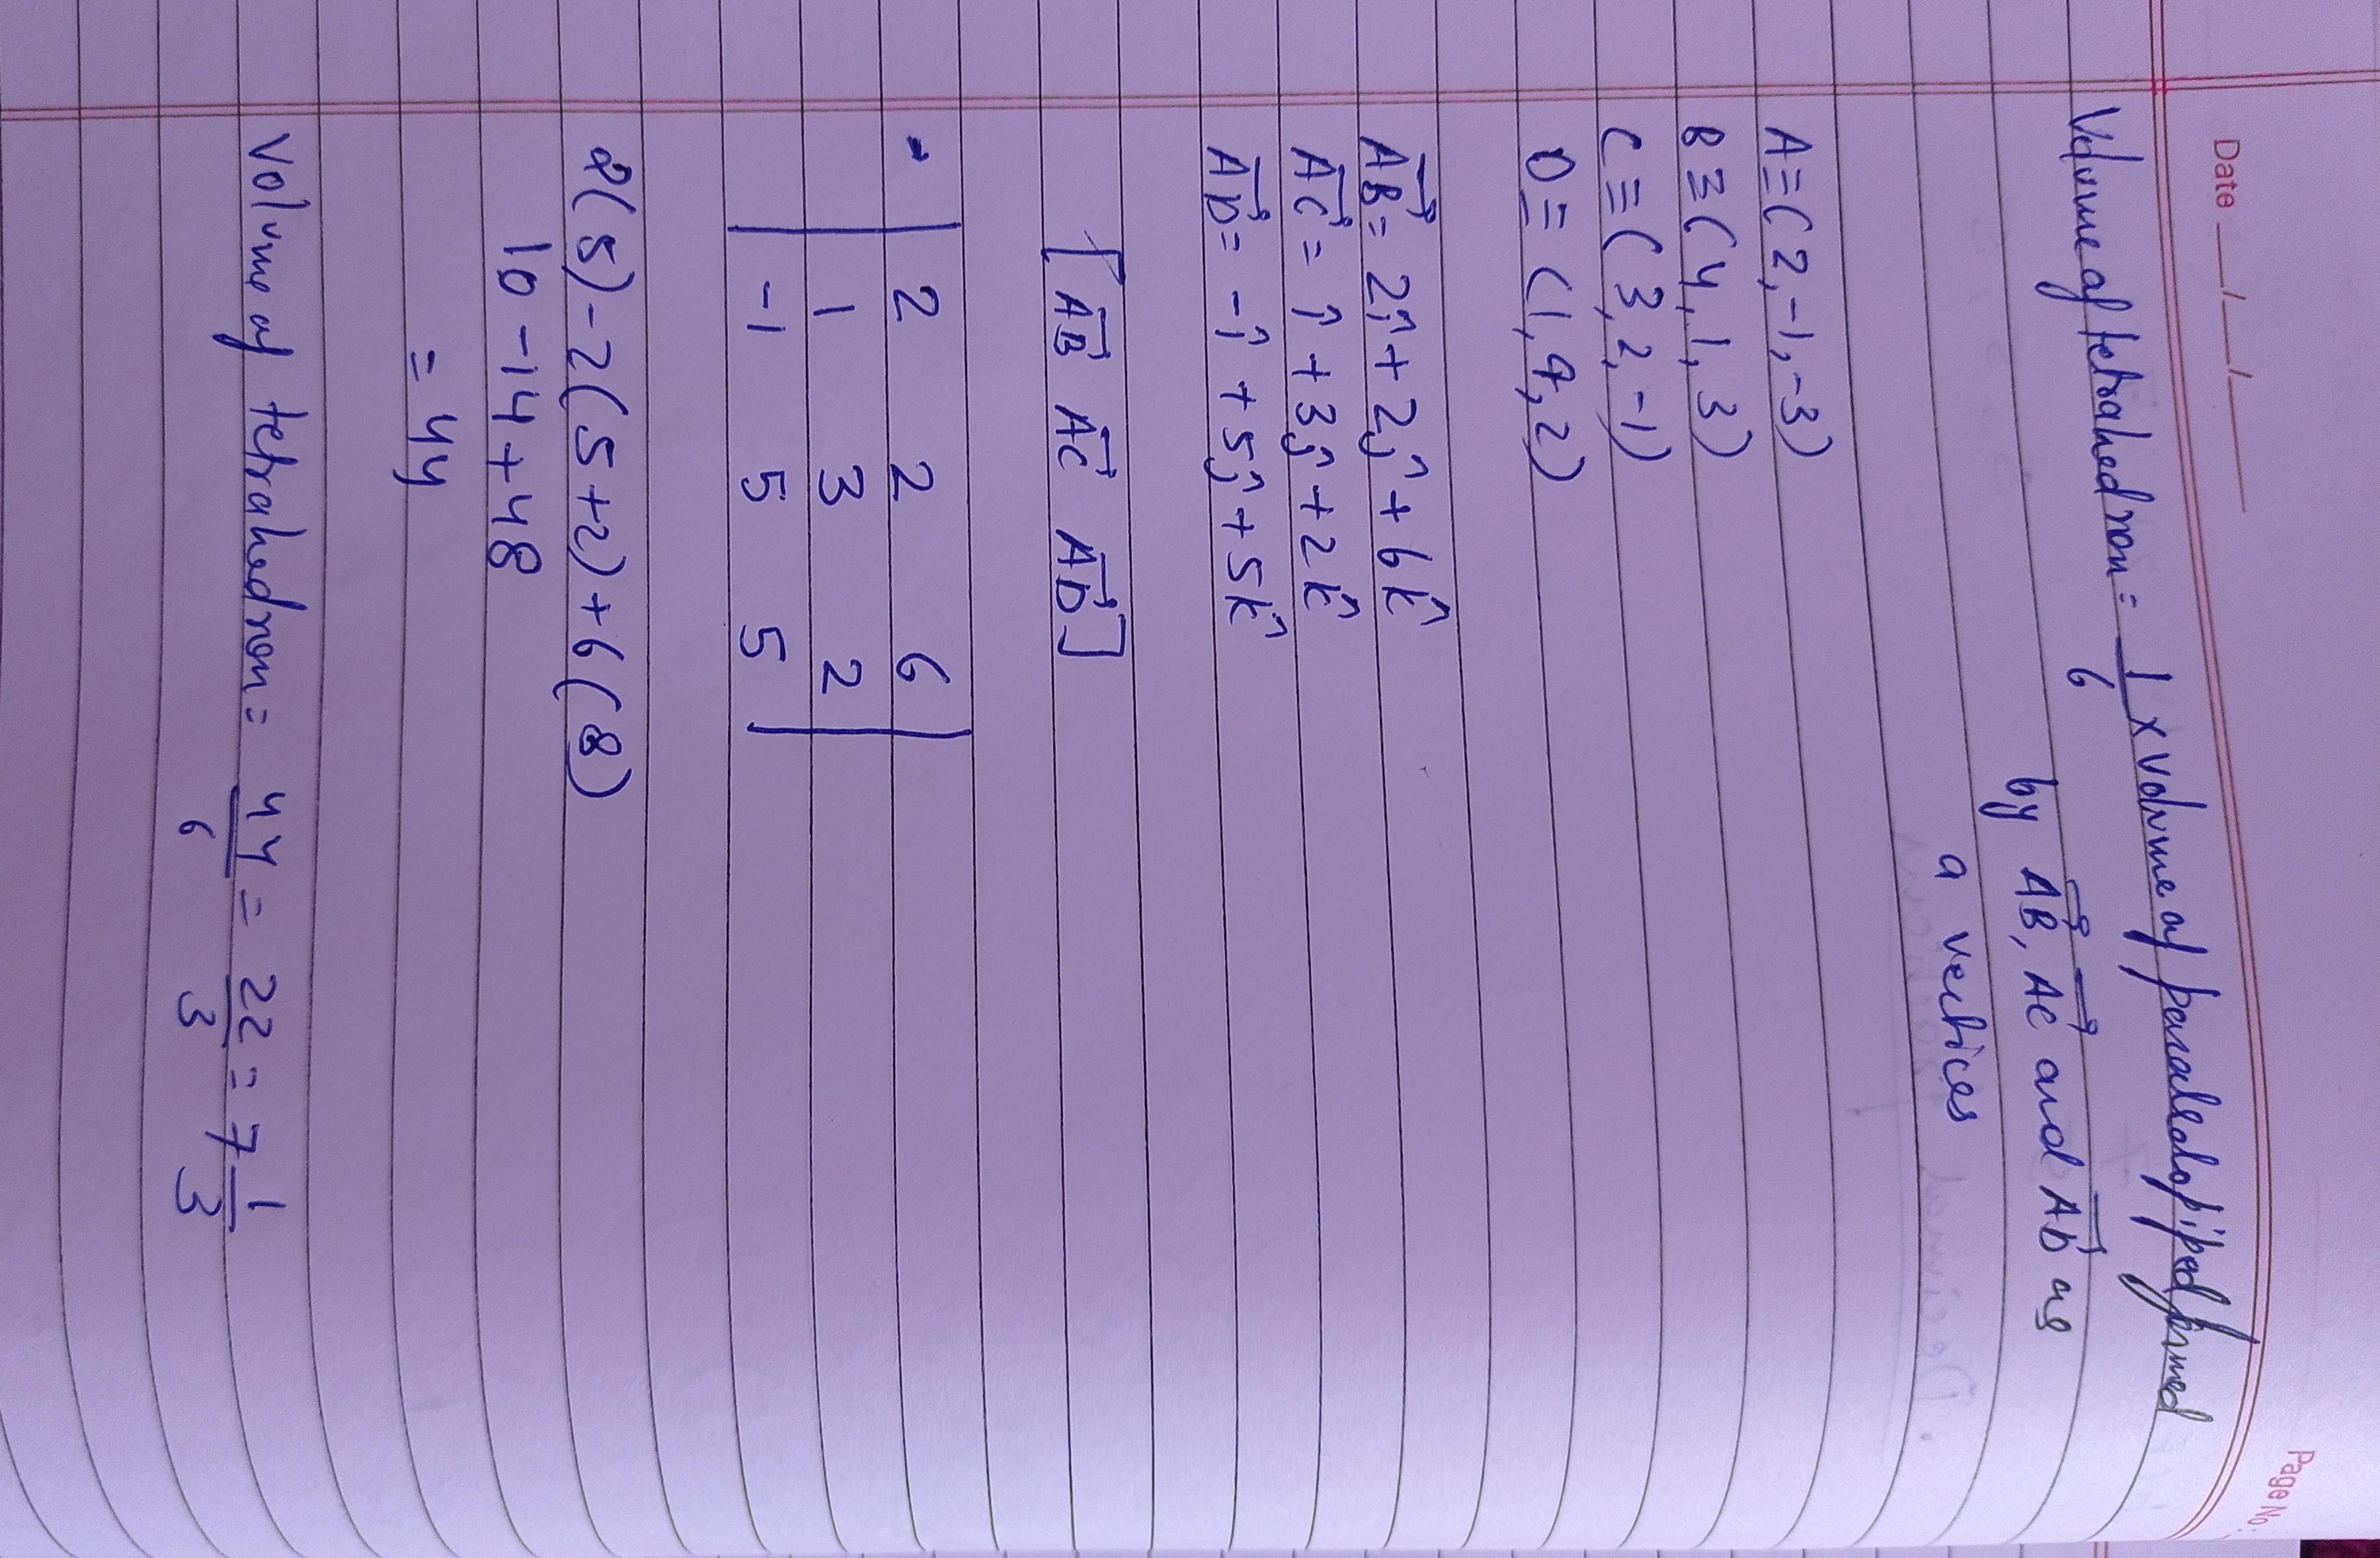 Date __/__/____
Page No.
Volume of tetrahedron = 1/6 x volume of paralledopiped formed
by AB, AC and AD as
a vertices
A≡(2,-1,-3)
B≡(4,1,3)
C≡(3,2,-1)
D≡(1,4,2)
AB⃗ = 2î + 2ĵ + 6k̂
AC⃗ = î + 3ĵ + 2k̂
AD⃗ = -î + 5ĵ + 5k̂
[AB⃗ AC⃗ AD⃗]
| 2 2 6 |
| 1 3 2 |
| -1 5 5 |
2(5)-2(5+2)+6(8)
10-14+48
= 44
Volume of tetrahedron = 44/6 = 22/3 = 7 1/3